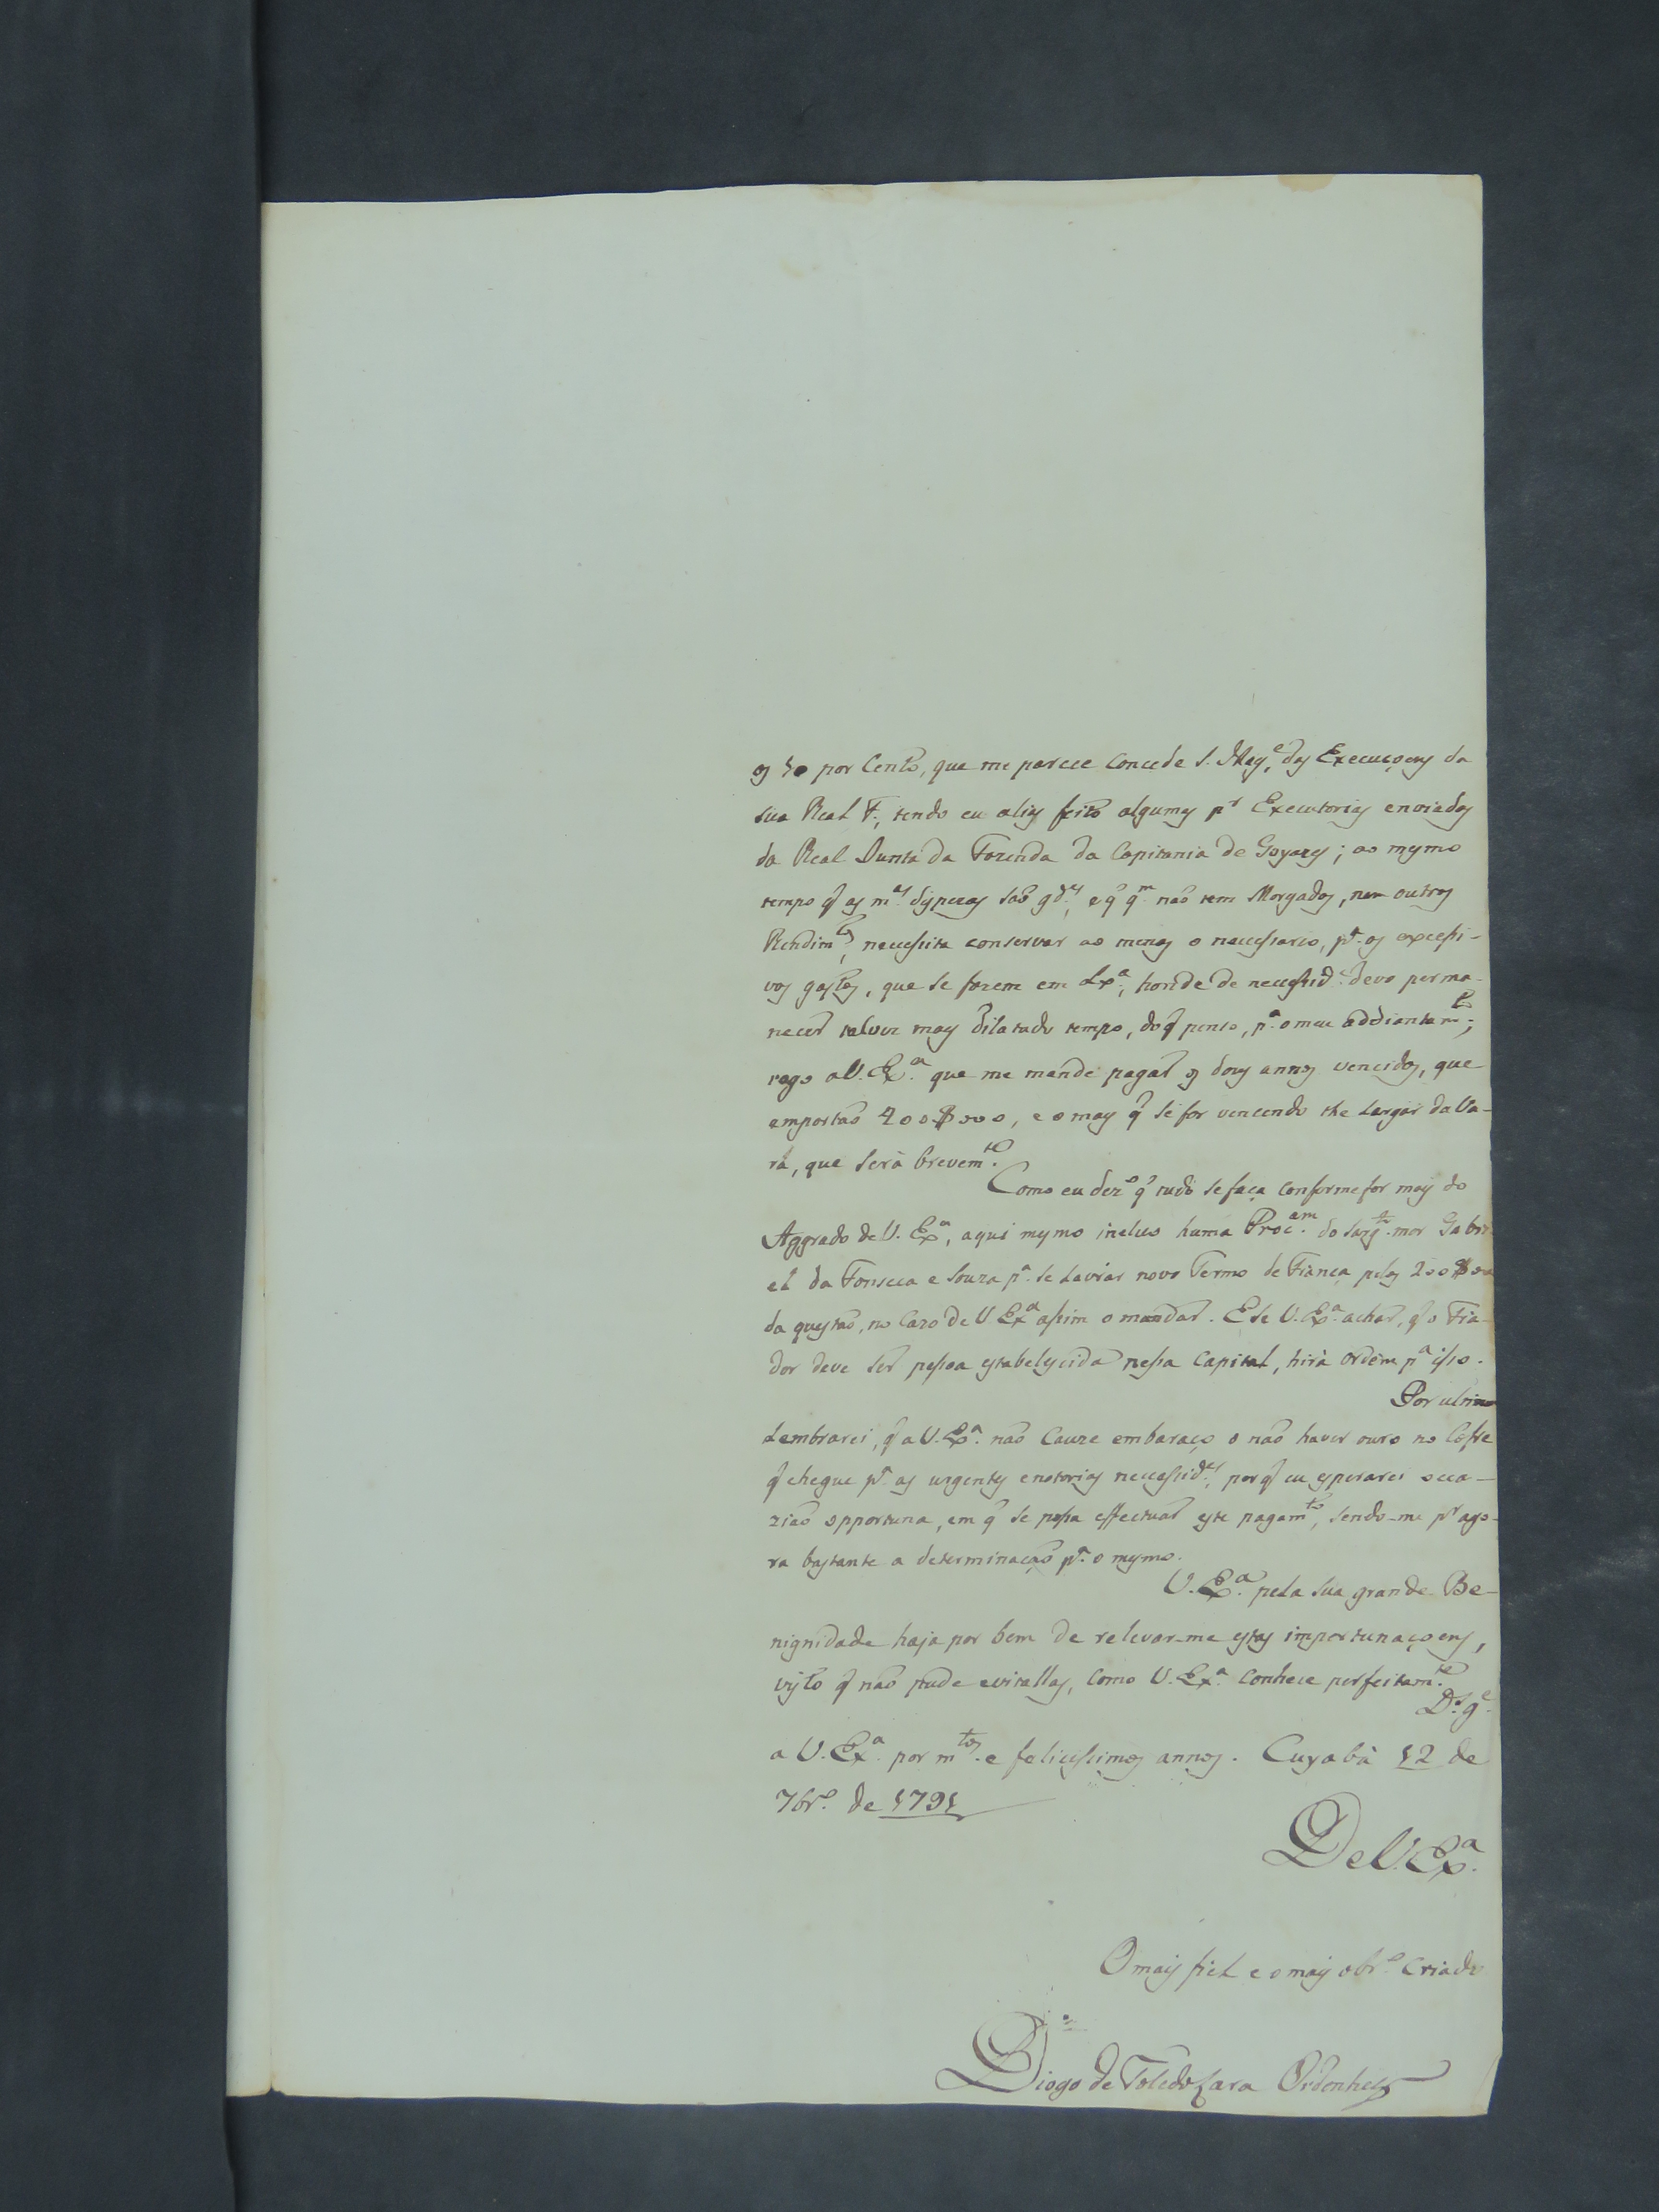 os 10 por Cento, que me parece concede S. Mag.e das Execuçoens da
sua Real F., tendo eu alias feito algumas p.r Executorias enviadas
da Real Junta da Fazenda da Capitania de Goyazes; ao mesmo
tempo q̃ as m.as dispezas saõ g.des, e q̃ q.m naõ tem Morgados, nem outros
Rendim.tos, necessita conservar ao menos o necessario, p.a os excessi-
vos gastos, que se fazem em Lx.a, honde de necessid.e devo perma-
necer talvez mais dilatado tempo, do q̃ penso, p.a o meu addiantam.to;
rogo a V. Ex.a que me mande pagar os dous annos vencidos, que
emportaõ 400$000, e o mais q̃ se for vencendo the largar da Va-
ra, que será brevem.te.
Como eu dez.o q̃ tudo se faça conforme for mais do
Aggrado de V. Ex.a, aqui mesmo incluo huma Proc.am do Sarg.to mor Gabri
el da Fonseca e Souza p.a se lavrar novo Termo de Fiança pelos 200$000
da questaõ, no cazo de V. Ex.a assim o mandar. E se V. Ex.a achar, q̃ o Fia-
dor deve ser pessoa estabelescida nessa Capital, hirá ordem p.a isso.
Por ultimo
Lembrarei, q̃ a V. Ex.a naõ cauze embaraço o naõ haver ouro no Cofre
q̃ chegue p.a as urgentes e notorias necessid.es, por q̃ eu esperarei occa-
ziaõ opportuna, em q̃ se possa effectuar este pagam.to, sendo-me p.r ago-
ra bastante a determinaçaõ p.a o mesmo.
V. Ex.a pela sua grande Be-
nignidade haja por bem de relevar-me estas importunaçoens,
visto q̃ naõ pude evitallas, como V. Ex.a conhece perfeitam.te.
D.s g.e
a V. Ex.a por m.tos e felicissimos annos. Cuyabá 12 de
7br.o de 1791
De V. Ex.a
O mais fiel e o mais obr.o criado
Diogo de Toledo Lara Ordonhes